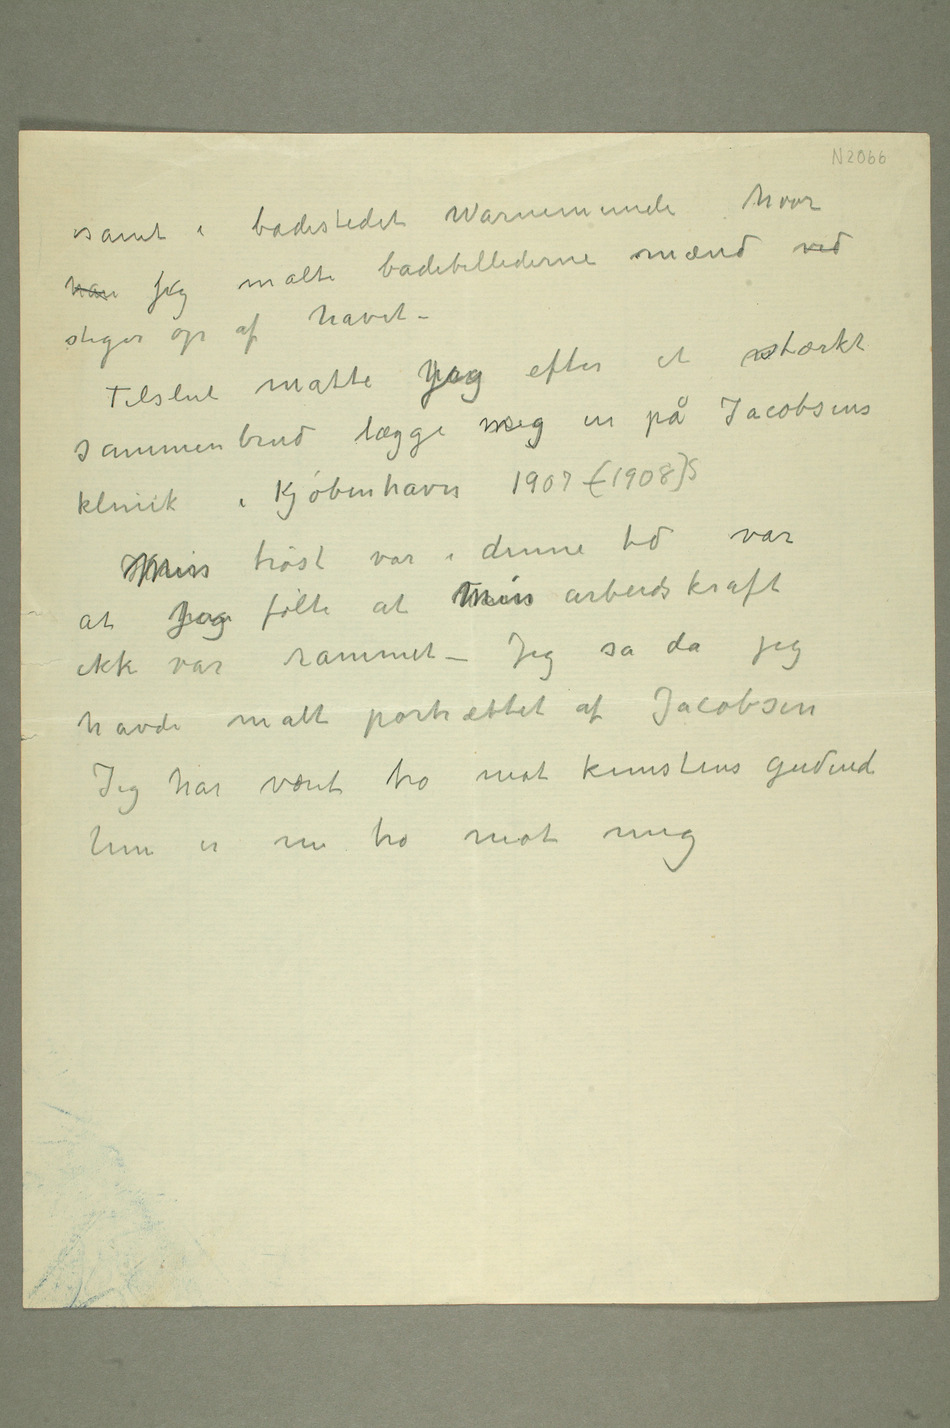 N 2066
samt i badestedet Warnemunde hvor
han jeg malte badebillederne mænd ved
stiger op af havet –
Tilslut matte jeg efter et stærkt
sammenbrud lægge meg in på Jacobsens
klinik i Kjøbenhavn 1907 (1908)
Min trøst var i denne tid var
at jeg følte at min arbeidskraft
ikke var rammet – Jeg sa da jeg
havde malt portrættet af Jacobsen
Jeg har været tro mot kunstens gudind
hun er nu tro mot mig